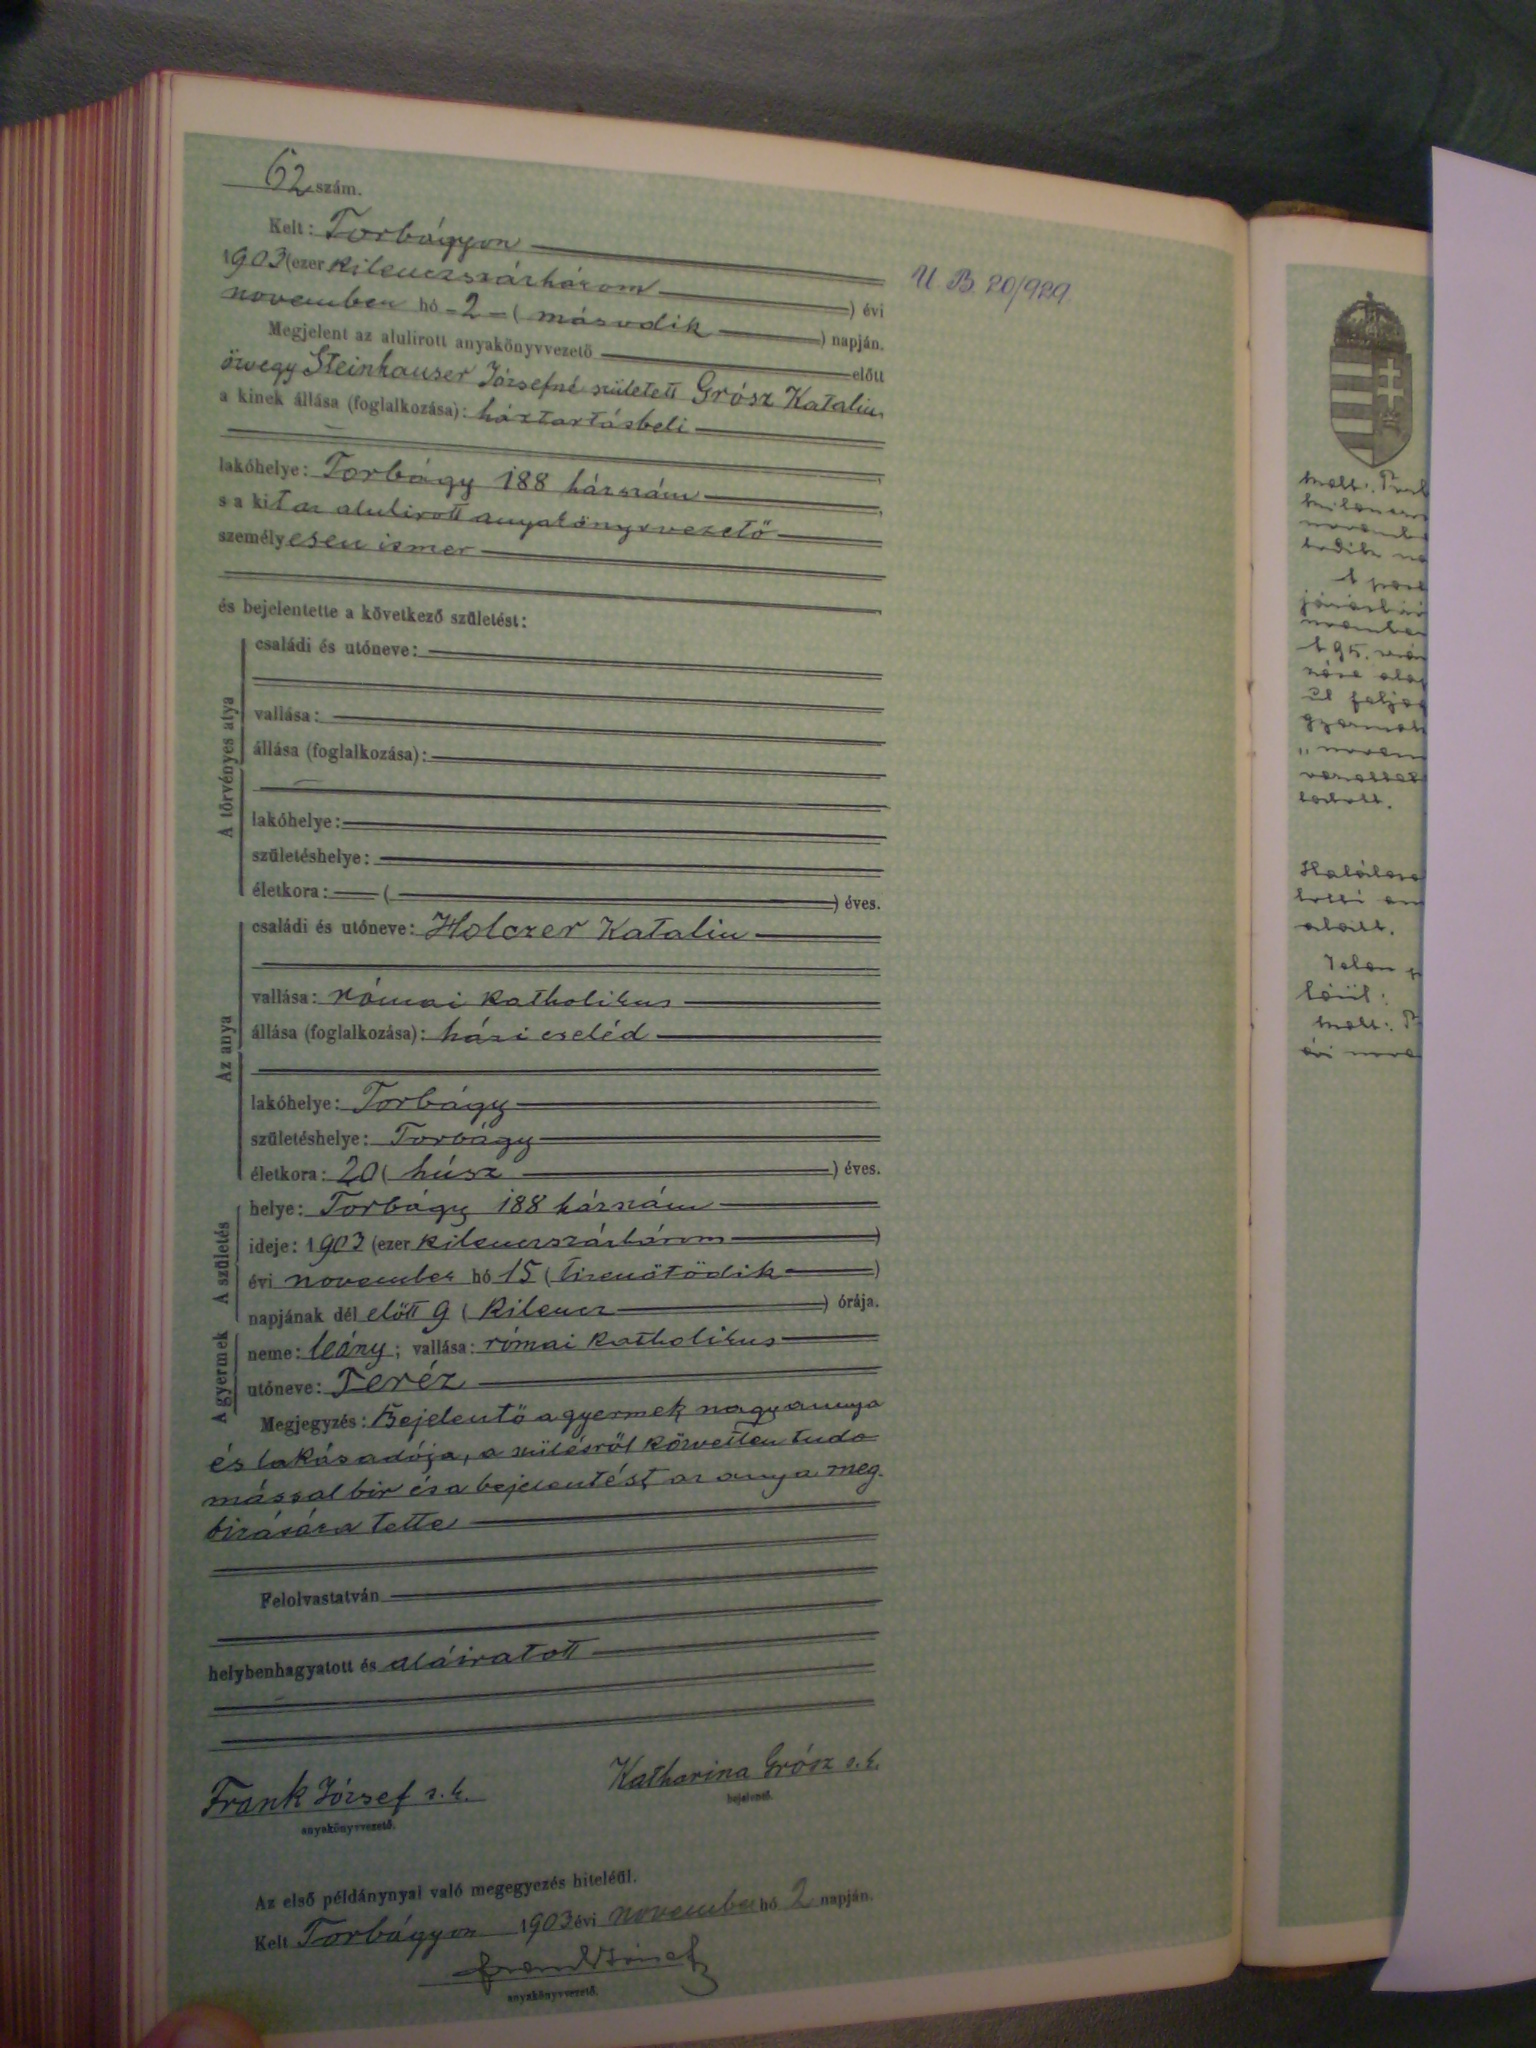 62 szám.
Kelt: Torbágyon
1903 (ezer kilenczszázhárom
) évi
november hó - 2 - ( második ) napján.
Megjelent az alulirott anyakönyvvezető előtt
özvegy Steinhauser Józsefné született Grósz Katalin,
a kinek állása (foglalkozása): háztartásbeli
lakóhelye: Torbágy 188 házszám
s a kit az alulirott anyakönyvvezető
személyesen ismer
és bejelentette a következő születést:
A törvényes atya
családi és utóneve:
vallása:
állása (foglalkozása):
lakóhelye:
születéshelye:
életkora: ( ) éves.
Az anya
családi és utóneve: Holczer Katalin
vallása: római katholikus
állása (foglalkozása): házi cseléd
lakóhelye: Torbágy
születéshelye: Torbágy
életkora: 20 ( húsz ) éves.
A születés
helye: Torbágy 188 házszám
ideje: 1903 (ezer kilenczszázhárom )
évi november hó 15 ( tizenötödik )
napjának dél előtt 9 ( kilencz ) órája.
A gyermek
neme: leány; vallása: római katholikus
utóneve: Teréz
Megjegyzés: Bejelentő a gyermek nagyanyja
és lakásadója, a szülésről közvetlen tudo
mással bir és a bejelentést az anya meg-
bizására tette
Felolvastatván
helybenhagyatott és aláiratott
Frank József s. k.
anyakönyvvezető.
Katharina Grósz s. k.
bejelentő.
Az első példánynyal való megegyezés hiteléül.
Kelt Torbágyon 1903 évi november hó 2 napján.
Frank József
anyakönyvvezető.
U. B. 20/929